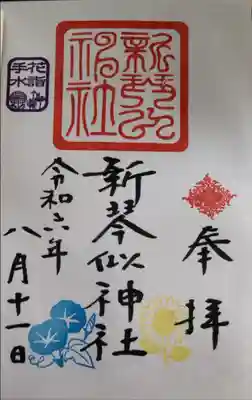 奉拝
新琴似神社
令和六年
八月十一日
新琴似神社
花詣
手水